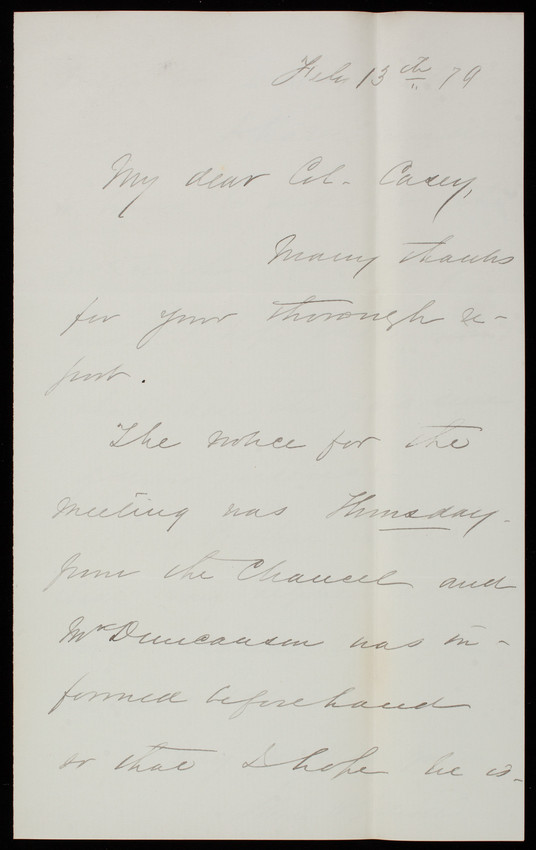 Feb 13th 79
My dear Col. Casey,
Many thanks
for your thorough re-
port.
The notice for the
meeting was Thursday.
from the Chancel and
Mr Duncanson was in-
formed beforehand
so that I hope he is